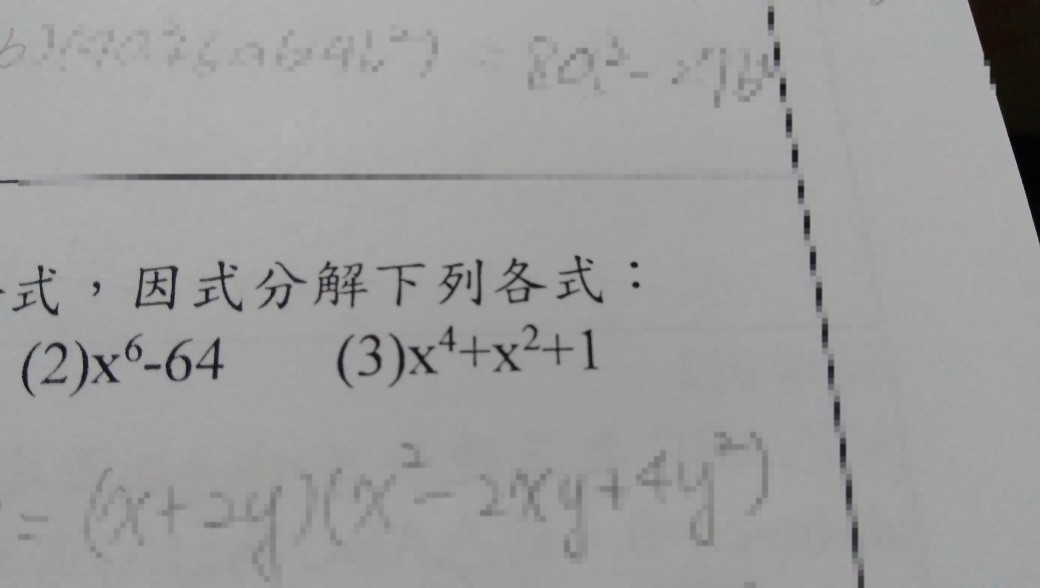 = 8a³ - 27b³
式，因式分解下列各式：
(2)x⁶-64 (3)x⁴+x²+1
= (x+2y)(x²-2xy+4y²)